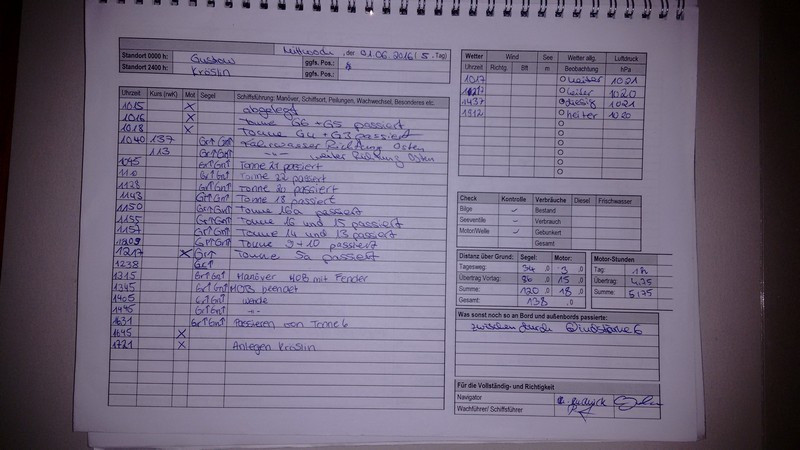 Mittwoch, der 01.06.2016 (5. Tag)
Standort 0000 h: Gustow ggfs. Pos.:
Standort 2400 h: Kröslin ggfs. Pos.:
Uhrzeit Kurs (rwK) Mot Segel Schiffsführung: Manöver, Schiffsort, Peilungen, Wachwechsel, Besonderes etc.
1015 X abgelegt
1016 X Tonne G6 + G5 passiert
1018 X Tonne G4 + G3 passiert
1040 137 Gr↑ Gn↑ Fahrwasser Richtung Osten
113 Gr↑ Gn↑ -"- weiter Richtung Osten
1045 Gr↑ Gn↑ Tonne 21 passiert
Gr↑ Gn↑ Tonne 22 passiert
1128 Gr↑ Gn↑ Tonne 20 passiert
1143 Gr↑ Gn↑ Tonne 18 passiert
1150 Gr↑ Gn↑ Tonne 16a passiert
1155 Gr↑ Gn↑ Tonne 16 und 15 passiert
1157 Gr↑ Gn↑ Tonne 14 und 13 passiert
1209 Gr↑ Gn↑ Tonne 9+10 passiert
1217 X Gr↑ Tonne 5a passiert
1238 Gr↑
1315 Gr↑ Gn↑ Manöver MOB mit Fender
1345 Gr↑ Gn↑ MOB beendet
1405 Gr↑ Gn↑ Wende
1445 Gr↑ Gn↑ -"-
1631 Gr↑ Gn↑ Passieren von Tonne 6
1645 X
1721 X Anlegen Kröslin
Wetter Wind See Wetter allg. Luftdruck
Uhrzeit Richtg. Bft m Beobachtung hPa
1017 heiter 1021
heiter 1020
1437 diesig 1021
1912 heiter 1020
Check Kontrolle Verbräuche Diesel Frischwasser
Bilge ✓ Bestand
Seeventile ✓ Verbrauch
Motor/Welle ✓ Gebunkert
Gesamt
Distanz über Grund: Segel: Motor: Motor-Stunden
Tagesweg: 34 ,0 3 ,0 Tag: 1h
Übertrag Vortag: 86 ,0 15 ,0 Übertrag: 4,75
Summe: 120 ,0 18 ,0 Summe: 5,75
Gesamt: 138 ,0
Was sonst noch so an Bord und außenbords passierte:
zwischendurch Windstärke 6
Für die Vollständig- und Richtigkeit
Navigator
Wachführer/ Schiffsführer